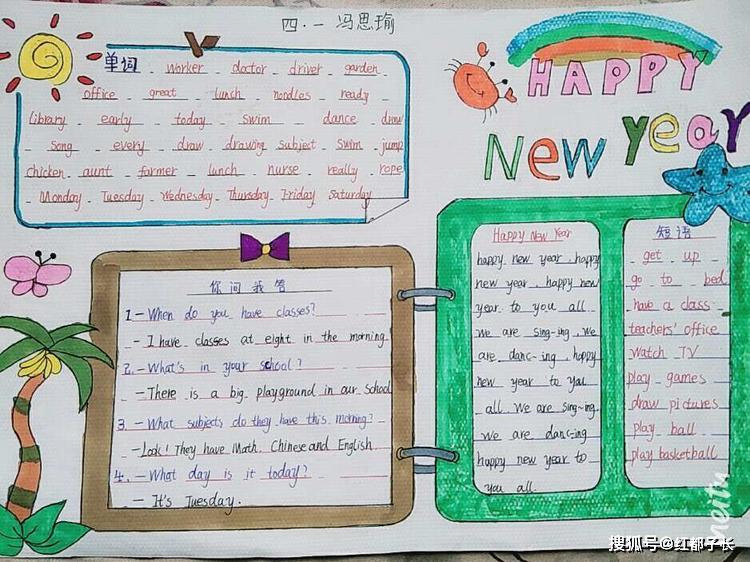 四.一 冯思瑜
单词 worker doctor driver garden
office great lunch noodles ready
library early today swim dance draw
song every draw drawing subject swim jump
chicken aunt farmer lunch nurse really rope
Monday Tuesday Wednesday Thursday Friday Saturday
HAPPY
New Year
你问我答
1.—When do you have classes?
—I have classes at eight in the morning
2.—What's in your school?
—There is a big playground in our school
3.—What subjects do they have this morning?
—Look! They have Math. Chinese and English
4.—What day is it today?
—It's Tuesday.
Happy New Year
happy new year, happy
new year, happy new
year to you all
we are sing-ing, we
are danc-ing, happy
new year to you
all. We are sing-ing
we are danc-ing
happy new year to
you all.
短语
get up
go to bed
have a class
teachers' office
watch TV
play games
draw pictures
play ball
play basketball
meitu
搜狐号@红都子长